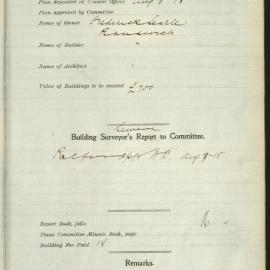 Plan deposited at Council Offices Aug 8 15
Plan approved by Committee
Name of Owner Frederick Searle
Randwick
Name of Builder "
Name of Architect "
Value of Buildings to be erected £700
Building Surveyor's Report to Committee.
Aug 9-15
Report Book, folio
Plans Committee Minute Book, page
Building Fee Paid
Remarks.